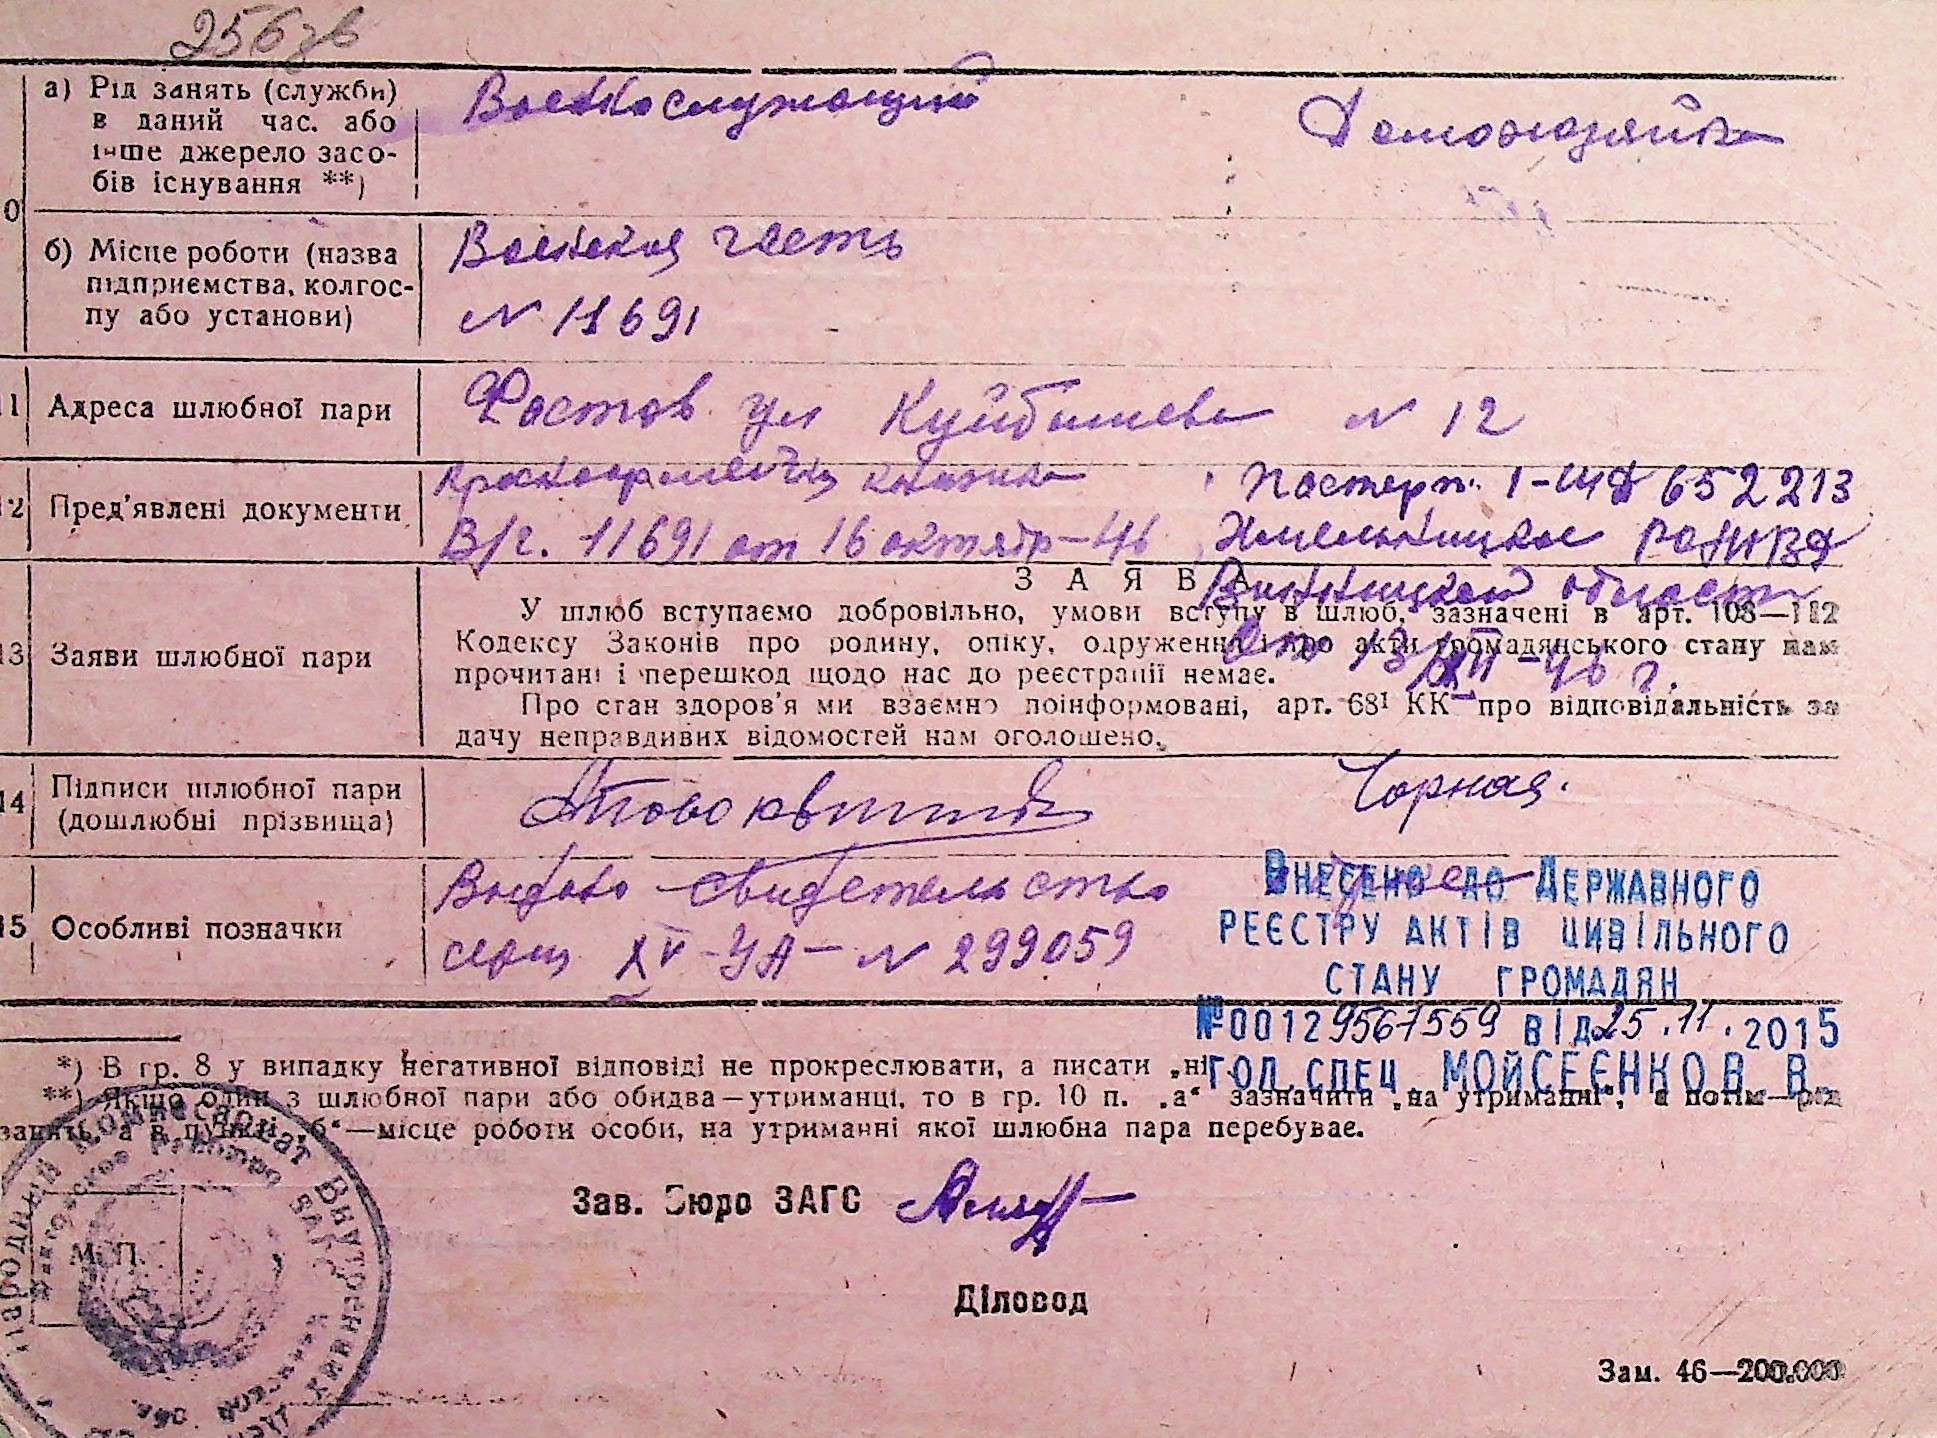 256зв
а) Рід занять (служби) в даний час. або інше джерело засобів існування **)
Военнослужащий
Домохозяйка
0
б) Місце роботи (назва підприємства, колгоспу або установи)
Воинская часть
N 11691
11 Адреса шлюбної пари
Фастов ул Куйбышева N 12
12 Пред’явлені документи
книжка
В/ч. 11691 от 16 октябр-46
1-ШД 652213
Хмельницкое РОМВД
Винницкой области
От 13/XII-46 г.
13 Заяви шлюбної пари
З А Я В А
У шлюб вступаємо добровільно, умови вступу в шлюб, зазначені в арт. 108—112
Кодексу Законів про родину, опіку, одруження і про акти громадянського стану нам
прочитані і перешкод щодо нас до реєстрації немає.
Про стан здоров’я ми взаємно поінформовані, арт. 68¹ КК про відповідальність за
дачу неправдивих відомостей нам оголошено.
14 Підписи шлюбної пари (дошлюбні прізвища)
Чорная.
15 Особливі позначки
Выдано свидетельство
серии XV-УА- N 299059
Внесено до Державного
реєстру актів цивільного
стану громадян
№00129567559 від 25.11.2015
Гол.спец Мойсеєнков В.
*) В гр. 8 у випадку негативної відповіді не прокреслювати, а писати „ні
**) Якщо один з шлюбної пари або обидва—утриманці, то в гр. 10 п. „а“ зазначити „на утриманні“, а потім—рід
занять, а в пункті „б“—місце роботи особи, на утриманні якої шлюбна пара перебуває.
Зав. Бюро ЗАГС
М. П.
Діловод
Зам. 46—200.000